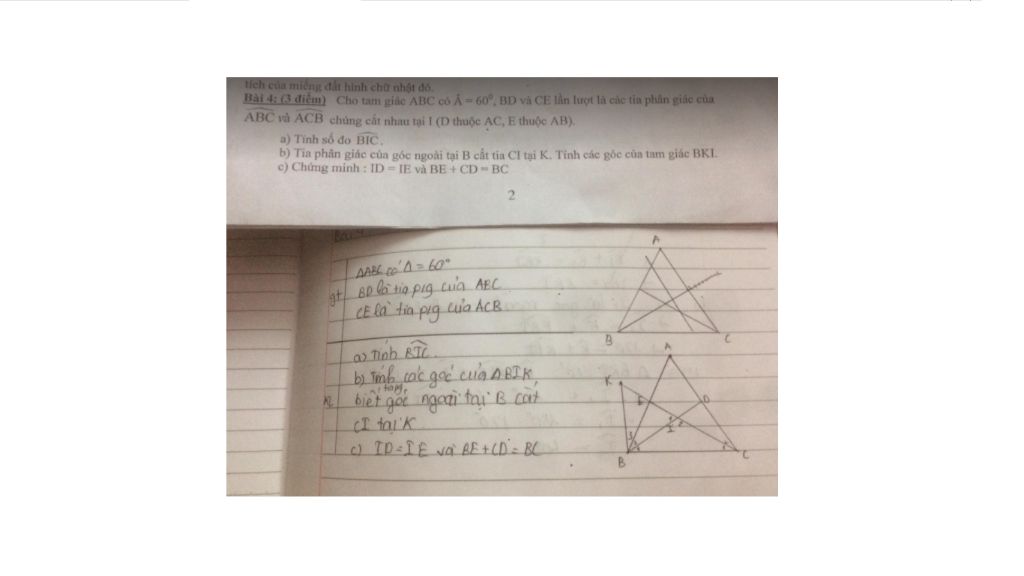 tích của miếng đất hình chữ nhật đó.
Bài 4: (3 điểm) Cho tam giác ABC có Â = 60⁰, BD và CE lần lượt là các tia phân giác của
ABC và ACB chúng cắt nhau tại I (D thuộc AC, E thuộc AB).
a) Tính số đo BIC.
b) Tia phân giác của góc ngoài tại B cắt tia CI tại K. Tính các góc của tam giác BKI.
c) Chứng minh : ID = IE và BE + CD = BC
2
ΔABC có A = 60°
gt BD là tia p/g của ABC
CE là tia p/g của ACB
a) Tính BIC
b) Tính các góc của ΔBIK
KL biết góc ngoài tại B cắt
CI tại K
c) ID = IE và BE + CD = BC
A
B
C
A
K
E
D
I
B
C